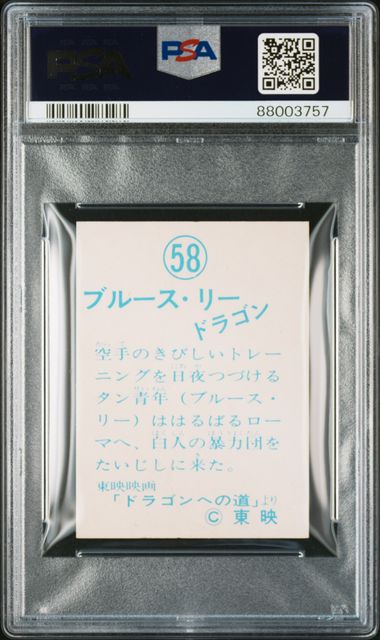 PSA
PSA
88003757
58
ブルース・リー
ドラゴン
空手のきびしいトレー
ニングを日夜つづける
タン青年（ブルース・
リー）ははるばるロー
マへ、白人の暴力団を
たいじしに来た。
東映映画
「ドラゴンへの道」より
© 東 映